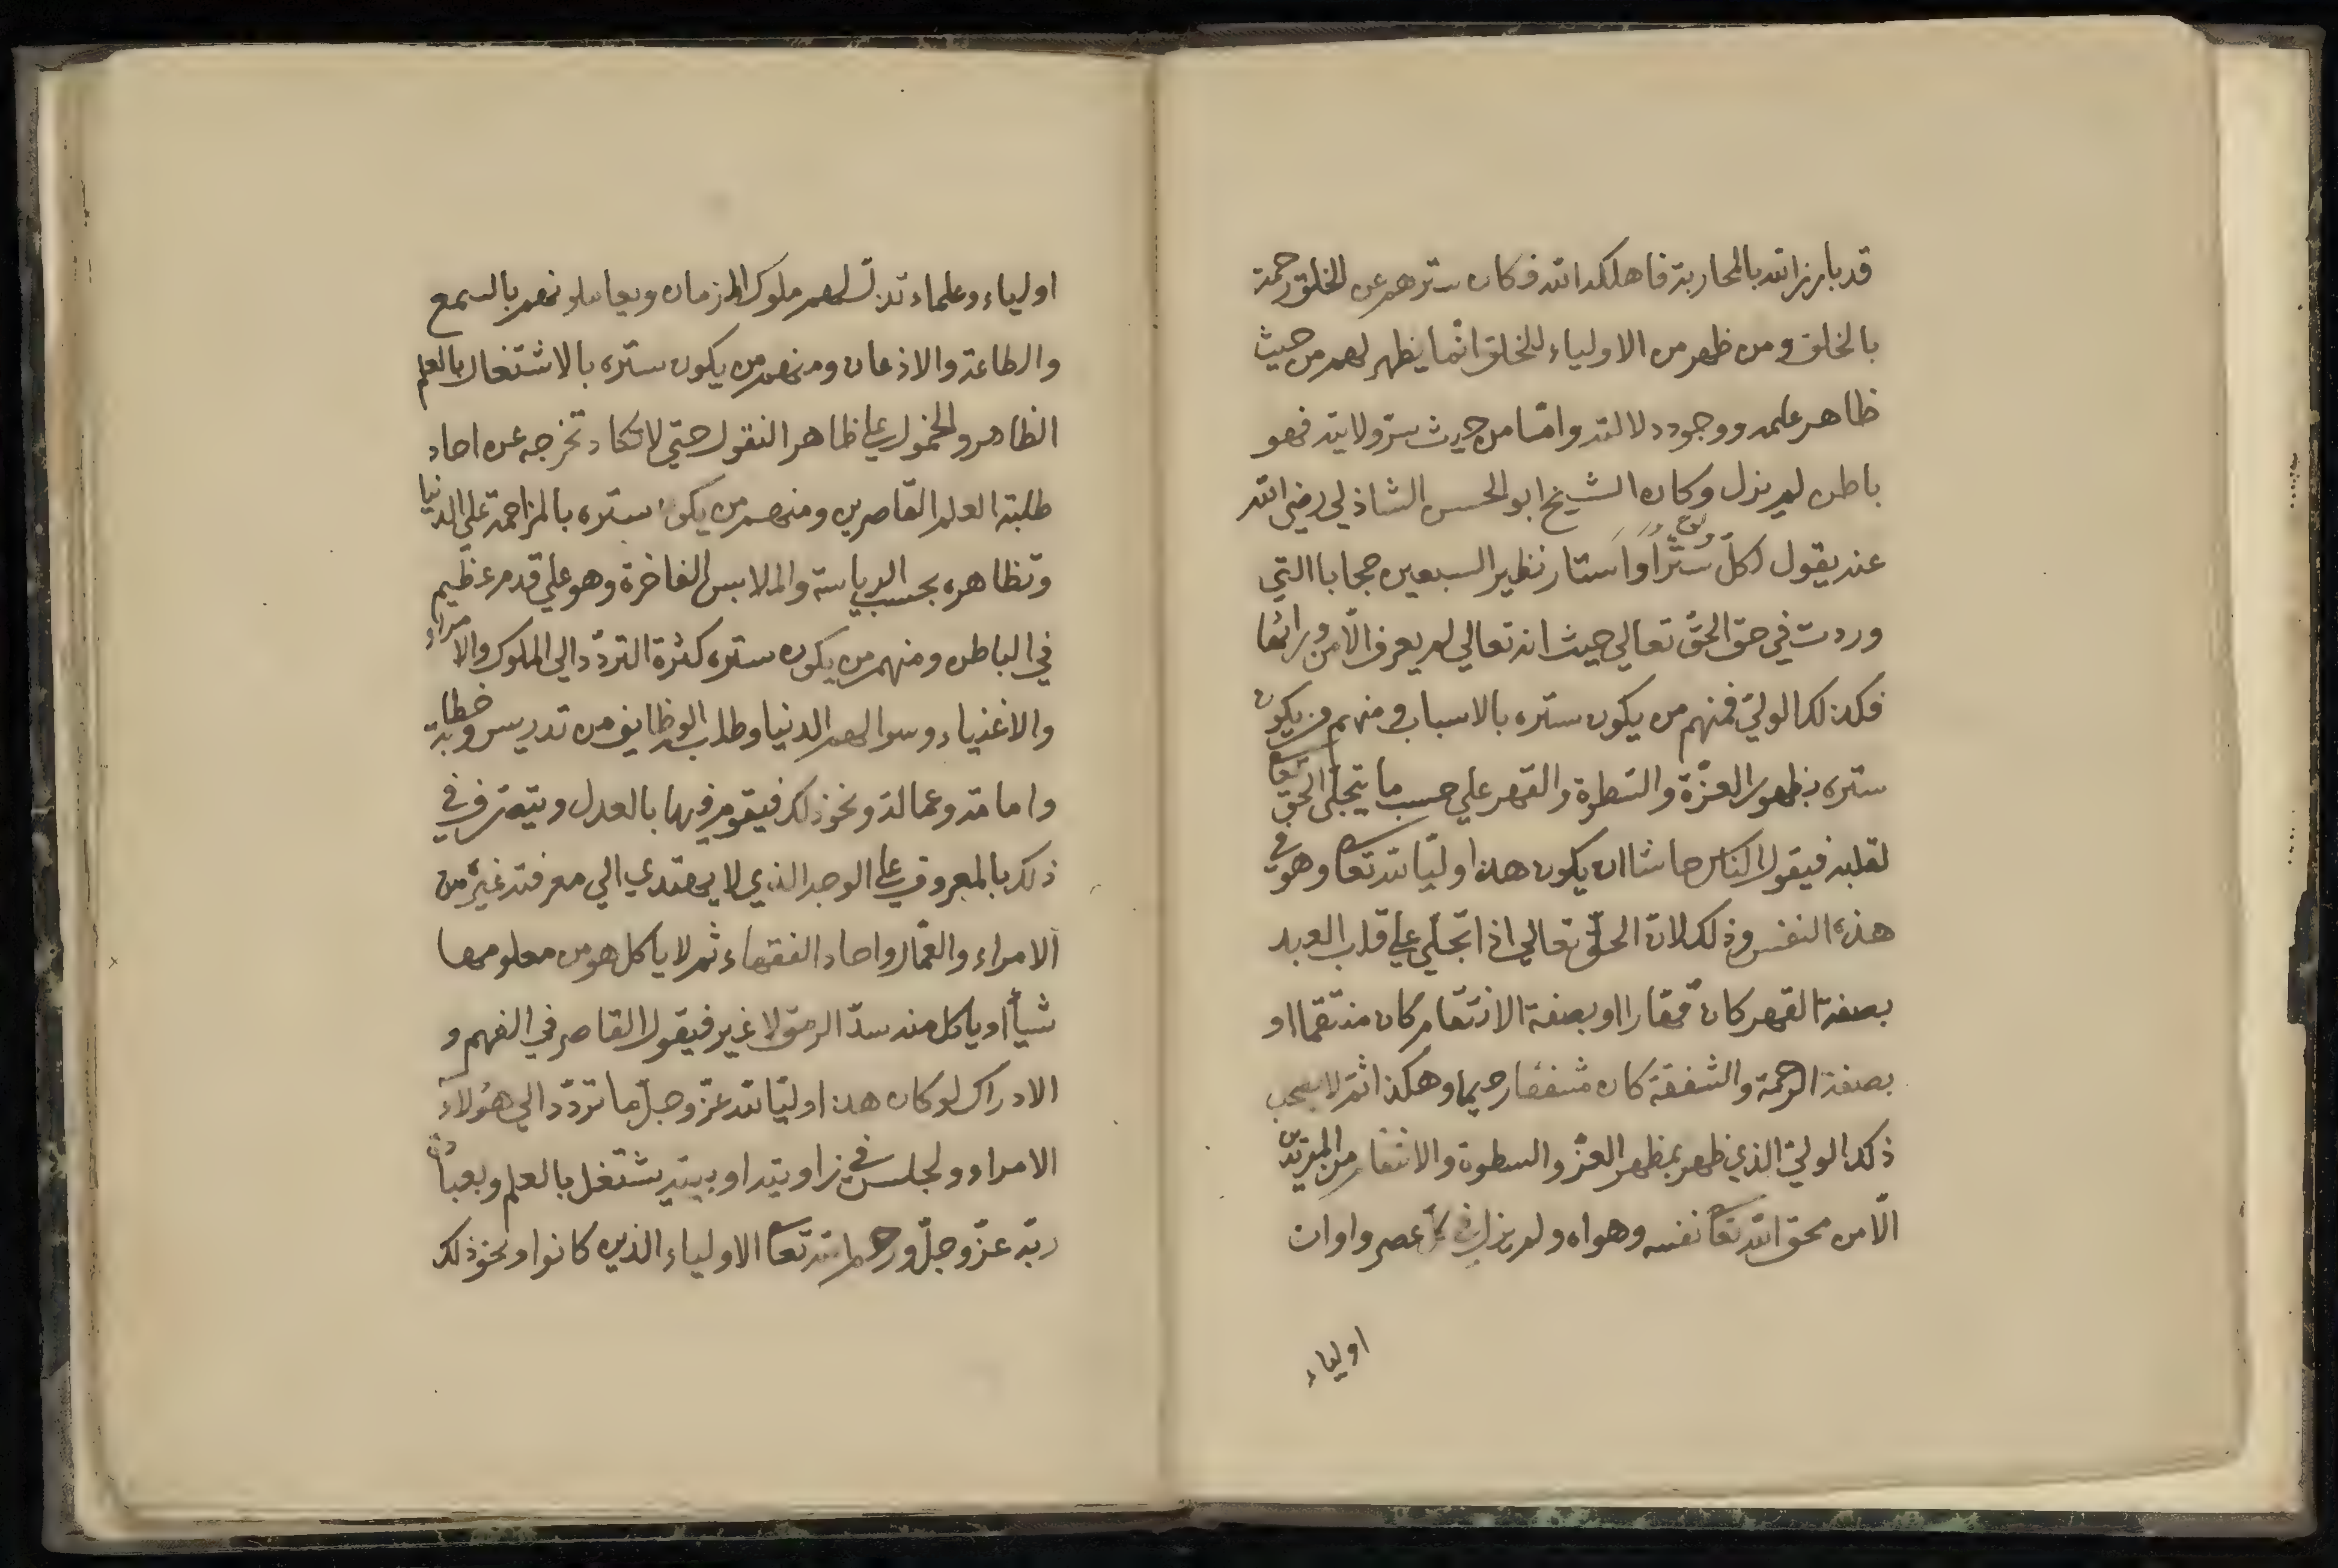 قد بارز الله بالمحاربة فاهلكه الله فكان سترهم عن الخلق رحمة
بالخلق ومن ظهر من الاولياء للخلق انما يظهر لهم من حيث
ظاهر علمه ووجود دلالته واما من حيث سر ولايته فهو
باطن لم يزل وكان الشيخ ابو الحسن الشاذلي رضي الله
عنه يقول لكل ستر او استار نظير السبعين حجابا التي
وردت في حق الحق تعالي حيث انه تعالي لم يعرف الا من ورائها
فكذلك الولي فمنهم من يكون ستره بالاسباب ومنهم من يكون
ستره بظهور العزة والسطوة والقهر علي حسب ما يتجلى الحق تعا
لقلبه فيقول الناس حاشا ان يكون هذا وليا لله تعا وهو في
هذه النفس وذلك لان الحق تعالي اذا تجلي علي قلب العبد
بصفة القهر كان قهارا او بصفة الانتقام كان منتقما او
بصفة الرحمة والشفقة كان مشفقا رحيما وهكذا ثم لا يصحب
ذلك الولي الذي ظهر بمظهر العز والسطوة والانتقام من المريدين
الا من محق الله تعا نفسه وهواه ولم يزل في كل عصر واوان
اولياء
اولياء وعلماء تذل لهم ملوك الزمان ويعاملونهم بالسمع
والطاعة والاذعان ومنهم من يكون ستره بالاشتغال بالعلم
الظاهر والخمول علي ظاهر النقول حتي لا تكاد تخرجه عن احاد
طلبة العلم القاصرين ومنهم من يكون ستره بالمزاحمة علي الدنيا
وتظاهره بحسب الرياسة والملابس الفاخرة وهو علي قدم عظيم
في الباطن ومنهم من يكون ستره كثرة التردد الي الملوك والامراء
والاغنياء وسوالهم الدنيا وطلب الوظايف من تدريس وخطابة
وامامة وعمالة ونحو ذلك فيقوم فيها بالعدل ويتصرف في
ذلك بالمعروف علي الوجه الذي لا يهتدي الي معرفته غيره من
الامراء والعمال واحاد الفقهاء ثم لا ياكل هو من معلومها
شيأ او ياكل منه سد الرمق لا غير فيقول القاصر في الفهم و
الادراك لو كان هذا وليا لله عز وجل ما تردد الي هؤلاء
الامراء ولجلس في زاويته او بيته يشتغل بالعلم وبعبادة
ربه عز وجل ورحم الله تعا الاولياء الذين كانوا ونحو ذلك